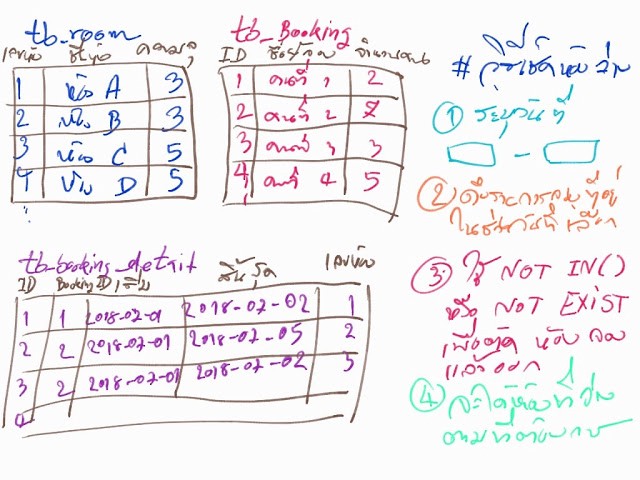 tb_room
เลขห้อง ชื่อห้อง ความจุ
1 ห้อง A 3
2 ห้อง B 3
3 ห้อง C 5
4 ห้อง D 5
tb_Booking
ID ชื่อผู้จอง จำนวนคน
1 คนที่ 1 2
2 คนที่ 2 7
3 คนที่ 3 3
4 คนที่ 4 5
tb_booking_detail
ID BookingID เริ่ม สิ้นสุด เลขห้อง
1 1 2018-02-01 2018-02-02 1
2 2 2018-02-01 2018-02-05 2
3 2 2018-02-01 2018-02-02 3
4
# วิธีเช็คห้องว่าง
① ระบุวันที่
-
② ดึงรายการจองที่อยู่
ในช่วงวันที่เลือก
③ ใช้ NOT IN()
หรือ NOT EXIST
เพื่อตัดห้องจอง
แล้วออก
④ จะได้ห้องที่ว่าง
ตามที่ต้องการ